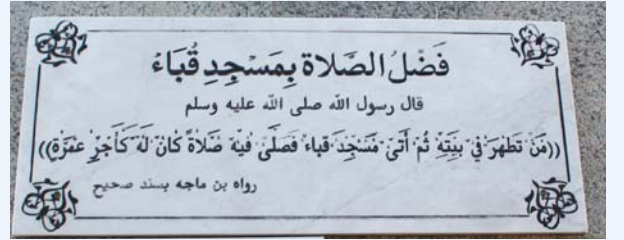 فَضْلُ الصَّلاة بِمَسْجِدِ قُبَاءُ
قال رسول الله صلى الله عليه وسلم
((مَنْ تَطَهَرَ فِيْ بَيْتِهِ ثُمَ أَتَىْ مَسْجِدَ قباءَ فَصَلَّىْ فِيْهِ صَلَاةً كَانَ لَهُ كَأَجْرِ عُمْرَةٍ))
رواه بن ماجه بسند صحيح